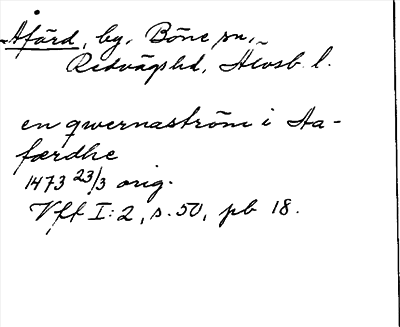 Åfärd, by, Böne sn,
Redvägs hd, Älvsb. l.
en qwernaström i Aa-
færdhe
1473 23/3 orig.
Vff I:2, s. 50, pb 18.